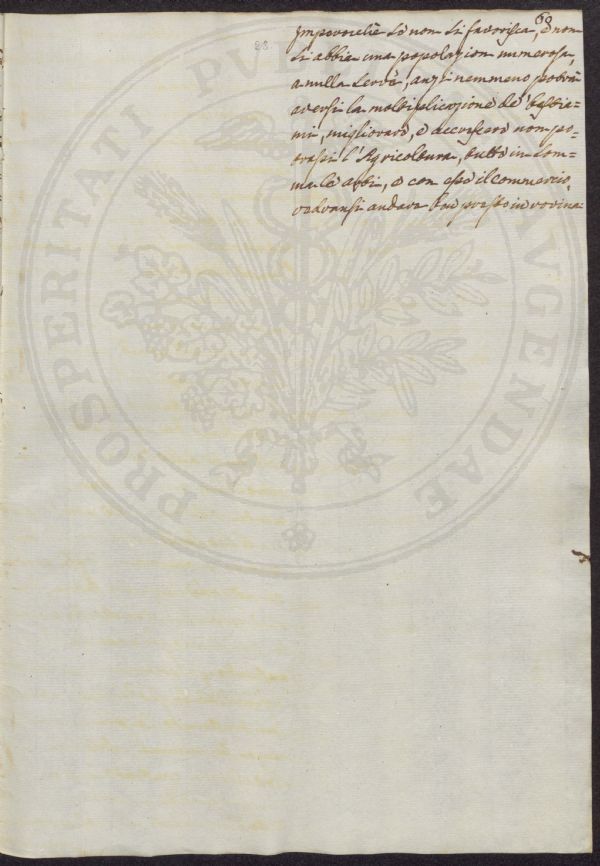 68
28
Impoverilie se non si favorisca, e non
si abbia una popolazion numerosa,
a nulla serve, anzi nemmeno potrà
aversi la moltiplicazione de' Bestia=
mi, migliorare, e accrescere non po=
trassi l'Agricoltura, tutto in som=
ma le arti, e con esse il commercio,
vedransi andare ben presto in rovina.
PROSPERITATI PUBLICAE AUGENDAE